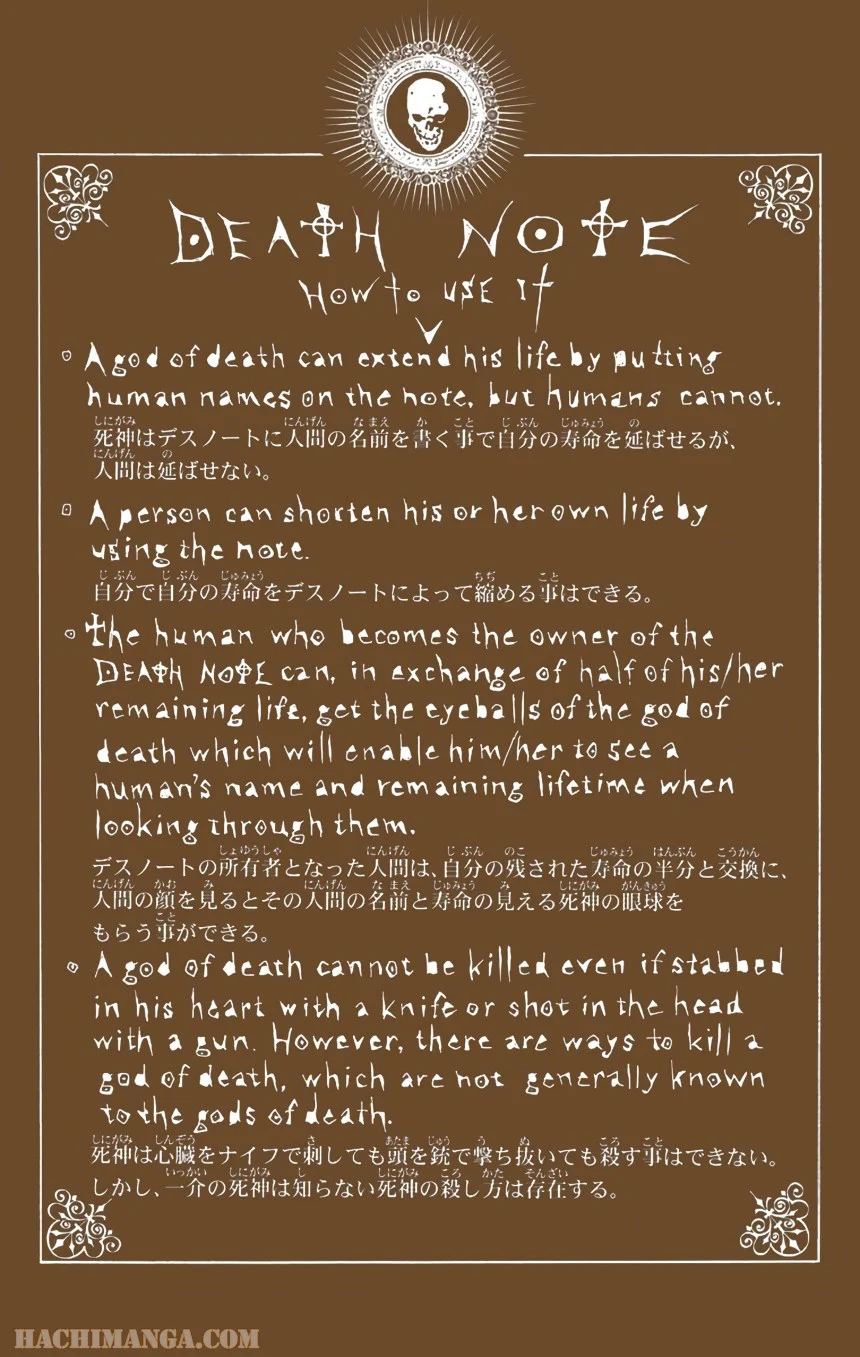 DEATH NOTE
HOW to USE It
A god of death can extend his life by putting
human names on the note, but humans cannot.
死神はデスノートに人間の名前を書く事で自分の寿命を延ばせるが、
人間は延ばせない。
A person can shorten his or her own life by
using the note.
自分で自分の寿命をデスノートによって縮める事はできる。
The human who becomes the owner of the
DEATH NOTE can, in exchange of half of his/her
remaining life, get the eyeballs of the god of
death which will enable him/her to see a
human's name and remaining lifetime when
looking through them.
デスノートの所有者となった人間は、自分の残された寿命の半分と交換に、
人間の顔を見るとその人間の名前と寿命の見える死神の眼球を
もらう事ができる。
A god of death cannot be killed even if stabbed
in his heart with a knife or shot in the head
with a gun. However, there are ways to kill a
god of death, which are not generally known
to the gods of death.
死神は心臓をナイフで刺しても頭を銃で撃ち抜いても殺す事はできない。
しかし、一介の死神は知らない死神の殺し方は存在する。
HACHIMANGA.COM